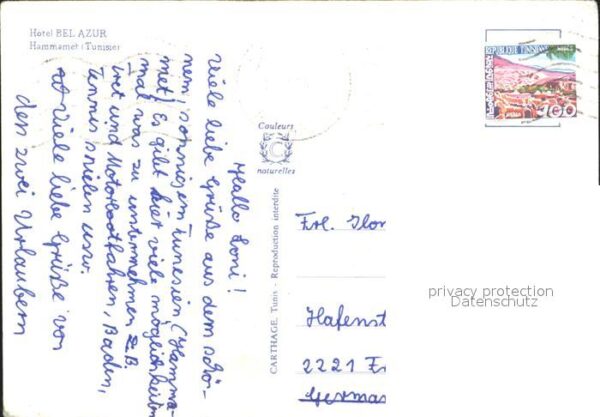 Hotel BEL AZUR
Hammamet (Tunisie)
Hallo Loni!
Viele liebe Grüße aus dem schö-
nen, sonnigen Tunesien (Hamma-
met). Es gibt hier viele möglichkeiten
mal was zu unternehmen z.B.
und Motorbootfahren, Baden,
Tennis spielen usw.
viele liebe Grüße von
den zwei Urlaubern
Couleurs
naturelles
CARTHAGE. Tunis - Reproduction interdite
REPUBLIQUE TUNISIENNE
100
Frl. Ilon
Hafenst
2221
German
privacy protection
Datenschutz